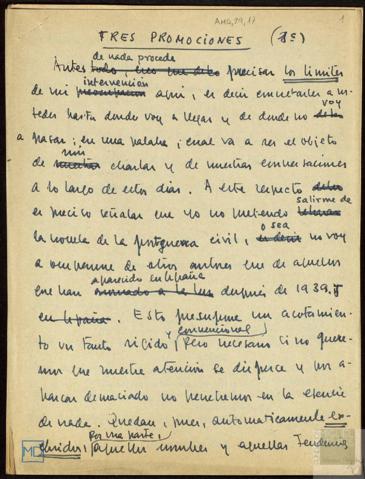 AMG,29,17
1
TRES PROMOCIONES (1º)
de nada procede
Antes precisar los límites
intervención
de mi aquí, es decir concretarles a us-
voy
tedes hasta donde voy a llegar y de donde no
a pasar; en una palabra, cual va a ser el objeto
mis
de charlas y de nuestras conversaciones
a lo largo de estos días. A este respecto
salirme de
es preciso señalar que yo no pretendo
o sea
la novela de la postguerra civil, no voy
a ocuparme de otros autores que de aquellos
aparecido en España
que han después de 1939.
en España. Esto presupone un acotamien-
y convencional
to un tanto rígido, pero necesario si no quere-
mos que nuestra atención se disperse y por a-
barcar demasiado no penetremos en la esencia
de nada. Quedan, pues, automaticamente ex-
por una parte,
cluidos, aquellos nombres y aquellas tendencias
MD